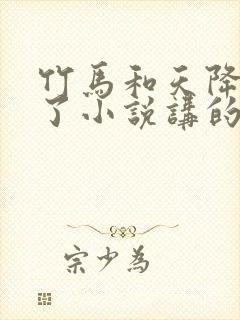 竹馬和天降
了小說講的
宗少為